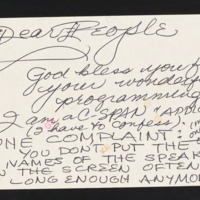 Dear People,
God bless you f
your wonderf
programming
I am a C-SPAN "ADDI
(I have to confess),
ONE COMPLAINT:
YOU DON'T PUT THE
NAMES OF THE SPEAK
ON THE SCREEN OFTEN
LONG ENOUGH ANYMOR